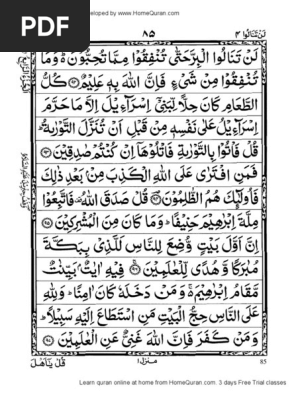 PDF
eloped by www.HomeQuran.com
لَنْ تَنَالُوا ٤
٨٥
لَنْ تَنَالُوا الْبِرَّ حَتّٰى تُنْفِقُوْا مِمَّا تُحِبُّوْنَ ؕ وَمَا
تُنْفِقُوْا مِنْ شَىْءٍ فَاِنَّ اللّٰهَ بِهٖ عَلِيْمٌ ﴿۹۲﴾ كُلُّ
الطَّعَامِ كَانَ حِلًّا لِّبَنِىْۤ اِسْرَآءِيْلَ اِلَّا مَا حَرَّمَ
اِسْرَآءِيْلُ عَلٰى نَفْسِهٖ مِنْ قَبْلِ اَنْ تُنَزَّلَ التَّوْرٰىةُ ؕ
قُلْ فَاْتُوْا بِالتَّوْرٰىةِ فَاتْلُوْهَاۤ اِنْ كُنْتُمْ صٰدِقِيْنَ ﴿۹۳﴾
فَمَنِ افْتَرٰى عَلَى اللّٰهِ الْكَذِبَ مِنْۢ بَعْدِ ذٰلِكَ
فَاُولٰٓئِكَ هُمُ الظّٰلِمُوْنَ ﴿۹۴﴾ قُلْ صَدَقَ اللّٰهُ فَاتَّبِعُوْا
مِلَّةَ اِبْرٰهِيْمَ حَنِيْفًا ؕ وَمَا كَانَ مِنَ الْمُشْرِكِيْنَ ﴿۹۵﴾
اِنَّ اَوَّلَ بَيْتٍ وُّضِعَ لِلنَّاسِ لَلَّذِىْ بِبَكَّةَ
مُبٰرَكًا وَّهُدًى لِّلْعٰلَمِيْنَ ﴿۹۶﴾ فِيْهِ اٰيٰتٌۢ بَيِّنٰتٌ
مَّقَامُ اِبْرٰهِيْمَ ۚ وَمَنْ دَخَلَهٗ كَانَ اٰمِنًا ؕ وَلِلّٰهِ
عَلَى النَّاسِ حِجُّ الْبَيْتِ مَنِ اسْتَطَاعَ اِلَيْهِ سَبِيْلًا ؕ
وَمَنْ كَفَرَ فَاِنَّ اللّٰهَ غَنِىٌّ عَنِ الْعٰلَمِيْنَ ﴿۹۷﴾
قُلْ يٰۤاَهْلَ
منزل ١
85
Learn quran online at home from HomeQuran.com. 3 days Free Trial classes